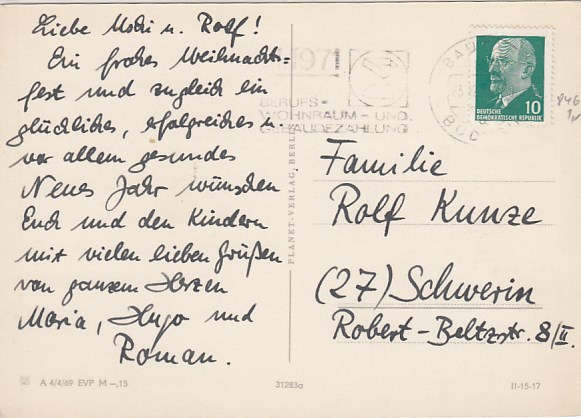 Liebe Mocki u. Rolf!
Ein frohes Weihnachts-
fest und zugleich ein
glückliches, erfolgreiches u.
vor allem gesundes
Neues Jahr wünschen
Euch und den Kindern
mit vielen lieben Grüßen
von ganzem Herzen
Maria, Hugo und
Roman.
A 4/4/69 EVP M -,15
PLANET-VERLAG, BERLIN
31283a
1971
BERUFS-
WOHNRAUM- UND
GEBÄUDEZÄHLUNG
BAD
DEUTSCHE
DEMOKRATISCHE REPUBLIK
10
846
Familie
Rolf Kunze
(27) Schwerin
Robert-Beltzstr. 8/II.
II-15-17